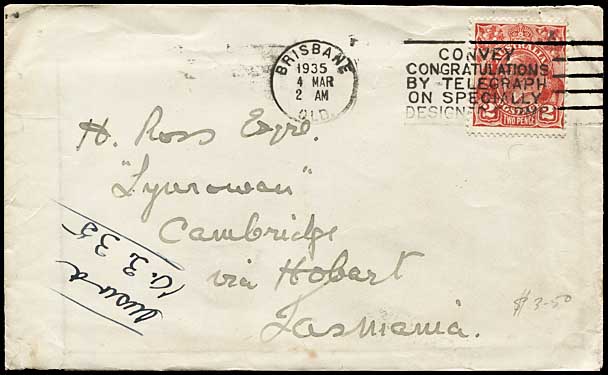 BRISBANE
1935
4 MAR
2 AM
QLD.
CONVEY
CONGRATULATIONS
BY TELEGRAPH
ON SPECIALLY
DESIGN
AUSTRALIA
2 2
TWO PENCE
H. Ross Esqre.
"Lynrowan"
Cambridge
via Hobart
Tasmania.
10.3.35
$3-50